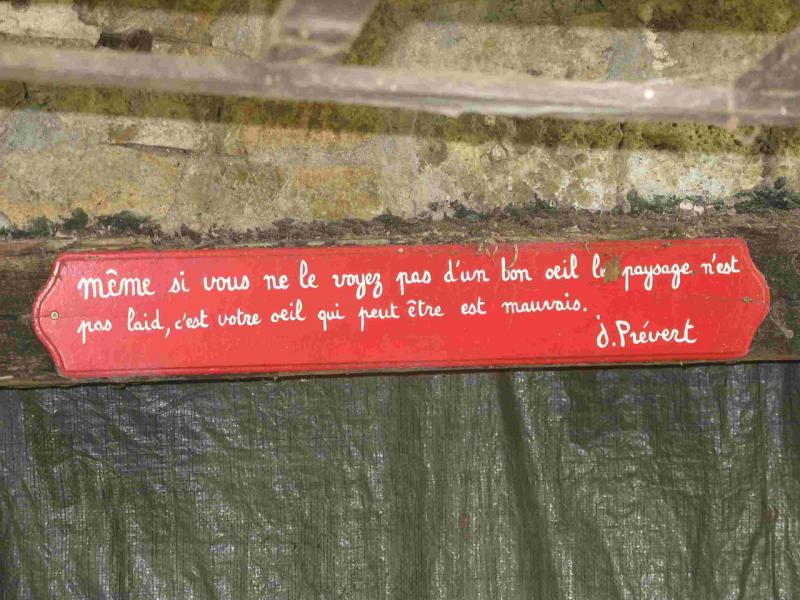 même si vous ne le voyez pas d'un bon oeil le paysage n'est
pas laid, c'est votre oeil qui peut être est mauvais.
J. Prévert